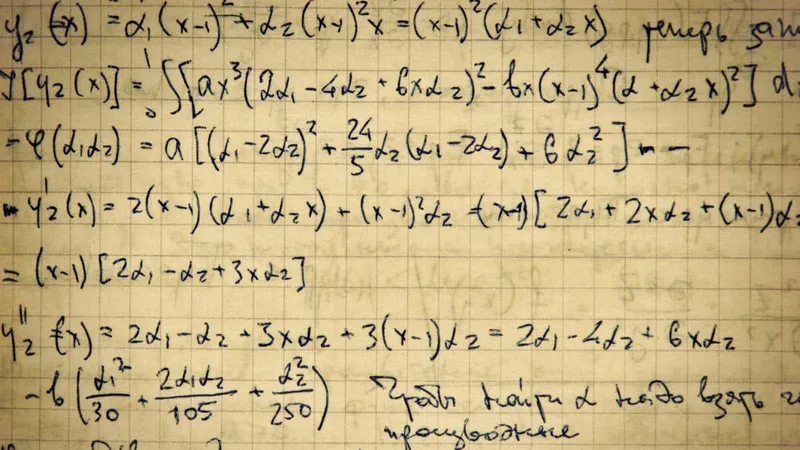 y₂(x) = α₁(x-1)² + α₂(x-1)²x = (x-1)²(α₁+α₂x) теперь
J[y₂(x)] = ₀∫¹[ax³(2α₁-4α₂+6xα₂)² - bx(x-1)⁴(α+α₂x)²]
- φ(α₁α₂) = a[(α₁-2α₂)² + 24/5 α₂(α₁-2α₂) + 6α₂²] - -
- y₂'(x) = 2(x-1)(α₁+α₂x) + (x-1)²α₂ = (x-1)[2α₁ + 2xα₂ + (x-1)α₂
= (x-1)[2α₁-α₂+3xα₂]
y₂''(x) = 2α₁-α₂+3xα₂+3(x-1)α₂ = 2α₁-4α₂+6xα₂
- b(α₁²/30 + 2α₁α₂/105 + α₂²/250) Чтобы найти α надо взять
производные